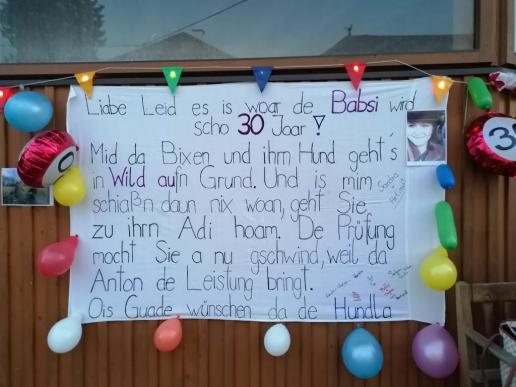 Liabe Leid es is woar de Babsi wird
scho 30 Joar!
Mid da Bixen und ihm Hund geht's
in Wild auf'n Grund. Und is mim
schiaß'n daun nix woan, geht Sie
zu ihrn Adi hoam. De Prüfung
mocht Sie a nu gschwind, weil da
Anton de Leistung bringt.
Ois Guade wünschen da de Hundla
Sandra
30